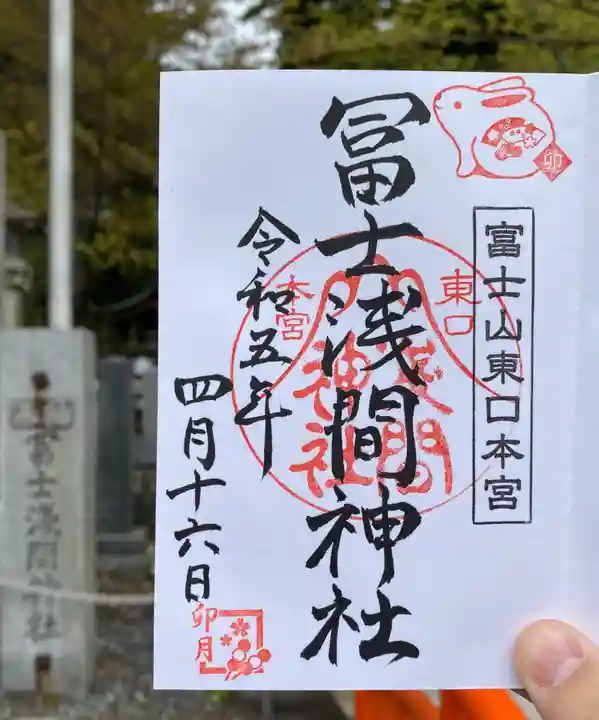 卯
富士山東口本宮
冨士浅間神社
東口
本宮
浅間
神社
令和五年
四月十六日
卯月
冨士浅間神社